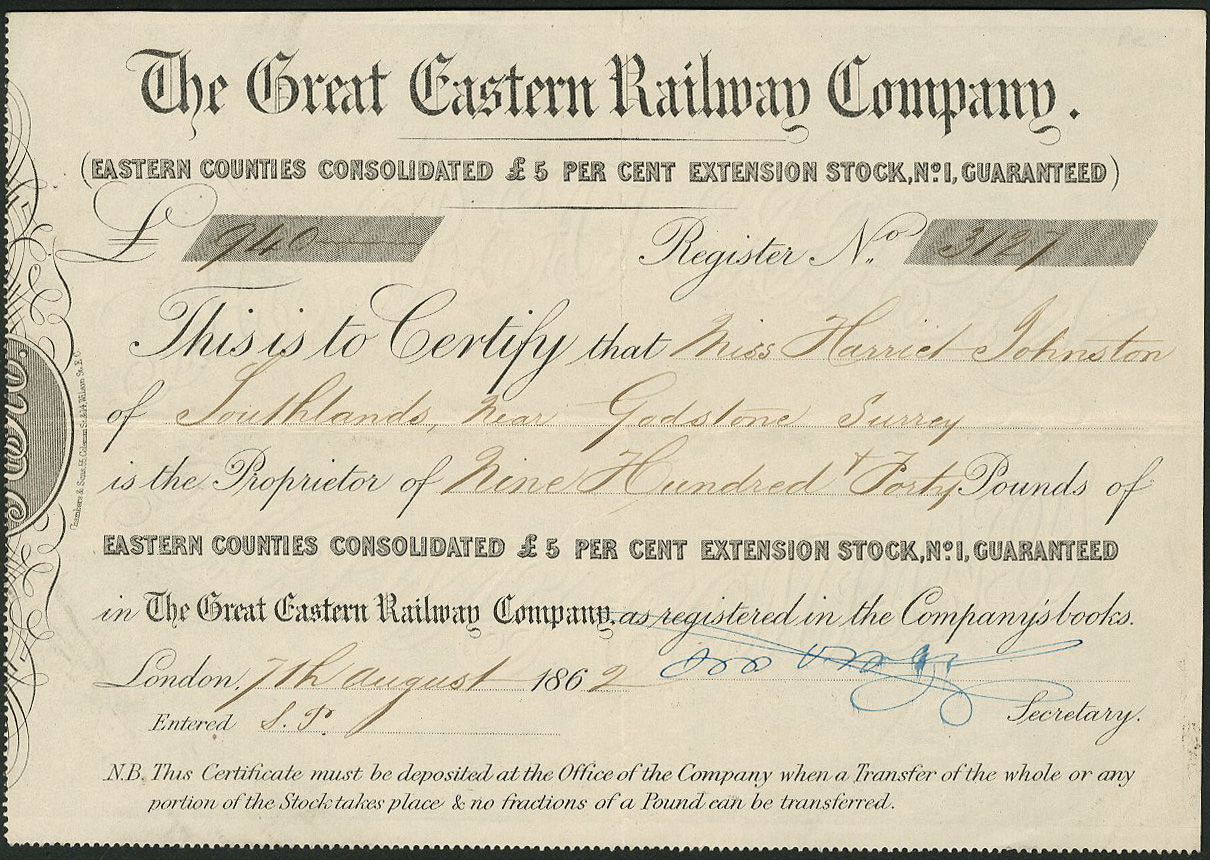 The Great Eastern Railway Company.
(EASTERN COUNTIES CONSOLIDATED £5 PER CENT EXTENSION STOCK, No. 1, GUARANTEED)
£ 940 Register No. 3127
This is to Certify that Miss Harriet Johnston
of Southlands, near Godstone Surrey
is the Proprietor of Nine Hundred & Forty Pounds of
EASTERN COUNTIES CONSOLIDATED £5 PER CENT EXTENSION STOCK, No. 1, GUARANTEED
in The Great Eastern Railway Company, as registered in the Company's books.
London, 7th August 1862
Entered S. P. Secretary.
N.B. This Certificate must be deposited at the Office of the Company when a Transfer of the whole or any
portion of the Stock takes place & no fractions of a Pound can be transferred.